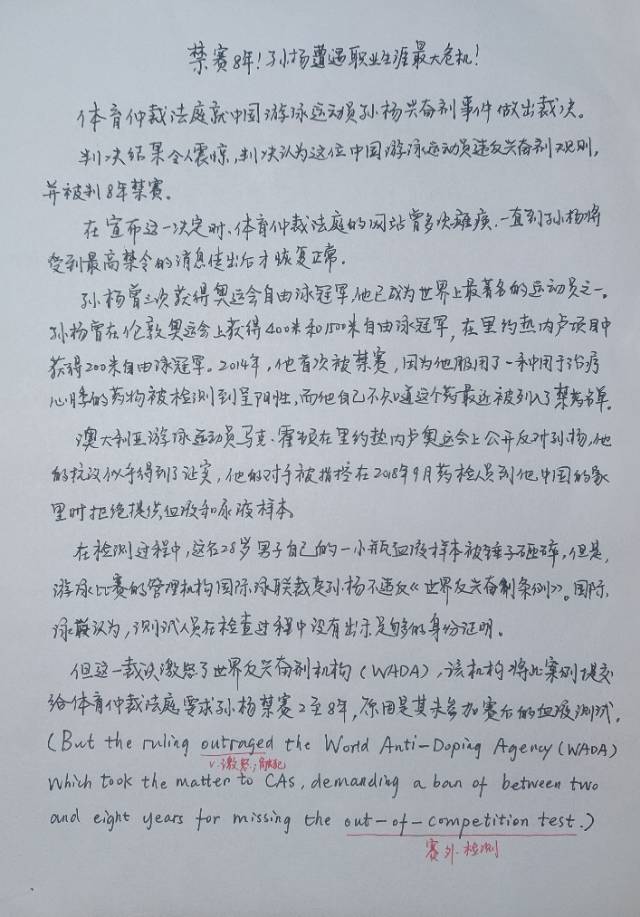 禁赛8年!孙杨遭遇职业生涯最大危机!
体育仲裁法庭就中国游泳运动员孙杨兴奋剂事件做出裁决。
判决结果令人震惊,判决认为这位中国游泳运动员违反兴奋剂规则,
并被判8年禁赛。
在宣布这一决定时,体育仲裁法庭的网站曾多次瘫痪,一直到孙杨将
受到最高禁令的消息传出后才恢复正常.
孙杨曾三次获得奥运会自由泳冠军,他已成为世界上最著名的运动员之一。
孙杨曾在伦敦奥运会上获得400米和1500米自由泳冠军,在里约热内卢项目中
获得200米自由泳冠军。2014年,他首次被禁赛,因为他服用了一种用于治疗
心悸的药物被检测到呈阳性,而他自己不知道这个药最近被列入了禁药名单。
澳大利亚游泳运动员马克·霍顿在里约热内卢奥运会上公开反对孙杨,他
的抗议似乎得到了证实,他的对手被指控在2018年9月药检人员到他中国的家
里时拒绝提供血液和尿液样本。
在检测过程中,这名28岁男子自己的一小瓶血液样本被锤子砸碎,但是,
游泳比赛的管理机构国际泳联裁定孙杨不违反《世界反兴奋剂条例》。国际
泳联认为,测试人员在检查过程中没有出示足够的身份证明。
但这一裁决激怒了世界反兴奋剂机构(WADA),该机构将此案例提交
给体育仲裁法庭,要求孙杨禁赛2至8年,原因是其未参加赛后的血液测试。
(But the ruling outraged the World Anti-Doping Agency (WADA)
v.激怒;触犯
which took the matter to CAs, demanding a ban of between two
and eight years for missing the out-of-competition test.)
赛外检测